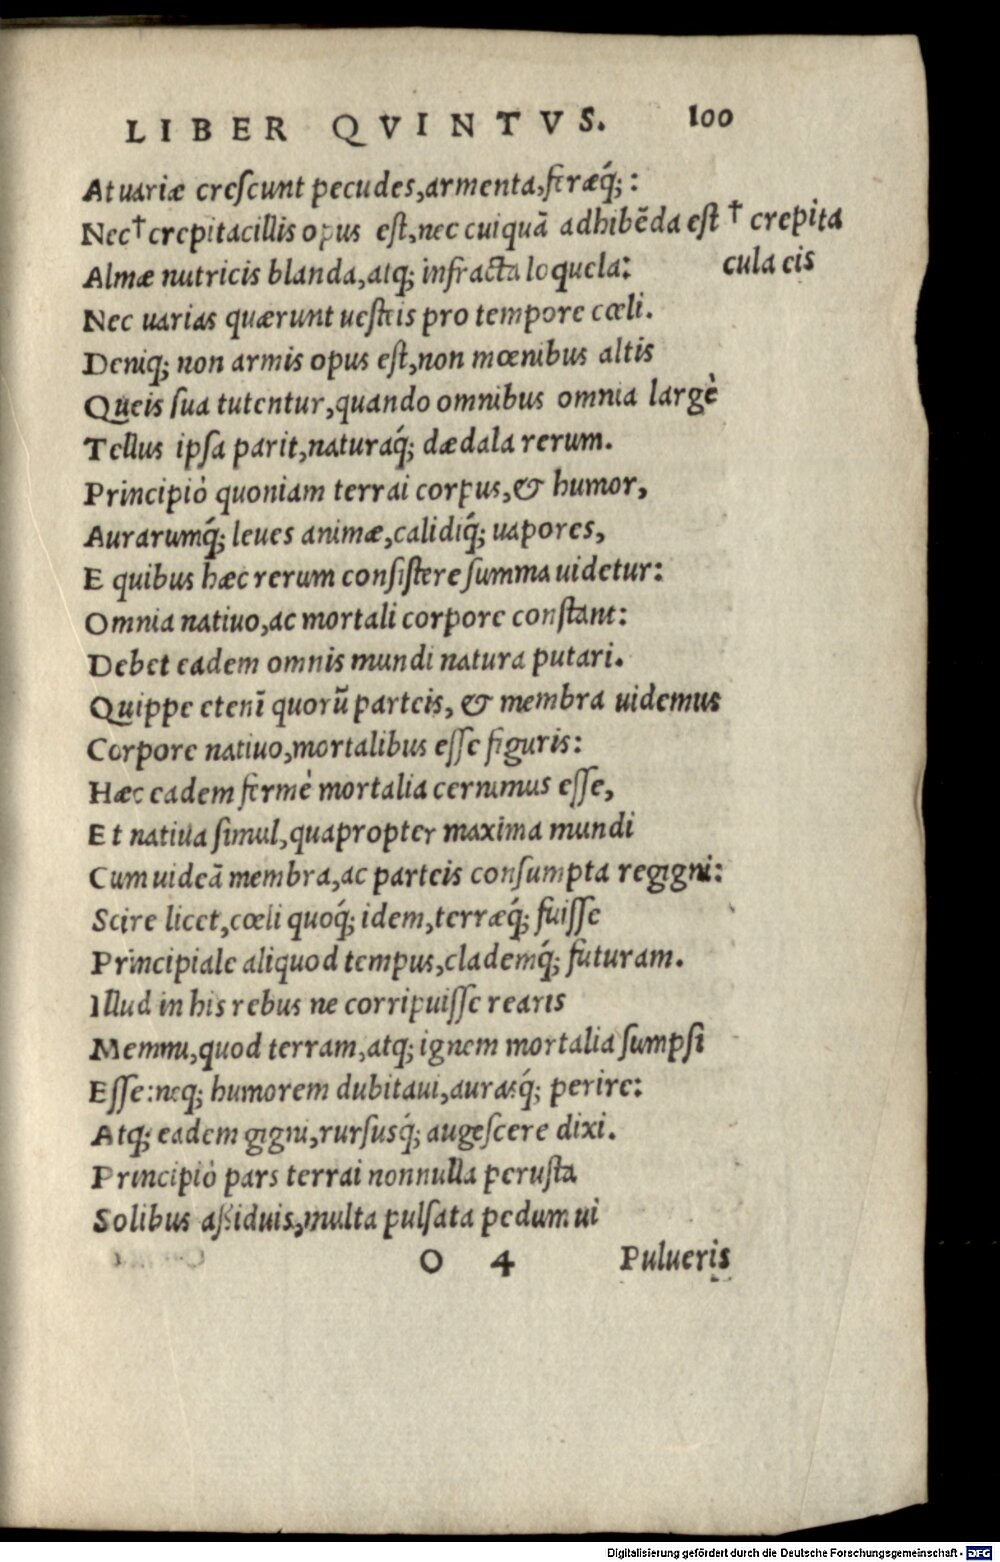 LIBER QVINTVS. 100
At uariæ crescunt pecudes, armenta, feræq́;:
Nec† crepitacillis opus est, nec cuiquā adhibēda est † crepita
Almæ nutricis blanda, atq; infracta loquela: cula eis
Nec uarias quærunt uesteis pro tempore cœli.
Deniq; non armis opus est, non mœnibus altis
Queis sua tutentur, quando omnibus omnia largè
Tellus ipsa parit, naturaq́; dædala rerum.
Principiò quoniam terrai corpus, & humor,
Aurarumq́; leues animæ, calidiq́; uapores,
E quibus hæc rerum consistere summa uidetur:
Omnia natiuo, ac mortali corpore constant:
Debet eadem omnis mundi natura putari.
Quippe etenī quorū parteis, & membra uidemus
Corpore natiuo, mortalibus esse figuris:
Hæc eadem fermè mortalia cernimus esse,
Et natiua simul, quapropter maxima mundi
Cum uideā membra, ac parteis consumpta regigni:
Scire licet, cœli quoq́; idem, terræq́; fuisse
Principiale aliquod tempus, clademq́; futuram.
Illud in his rebus ne corripuisse rearis
Memmi, quod terram, atq; ignem mortalia sumpsi
Esse: neq; humorem dubitaui, aurasq́; perire:
Atq; eadem gigni, rursusq́; augescere dixi.
Principiò pars terrai nonnulla perusta
Solibus aßiduis, multa pulsata pedum ui
O 4 Pulueris
Digitalisierung gefördert durch die Deutsche Forschungsgemeinschaft - DFG